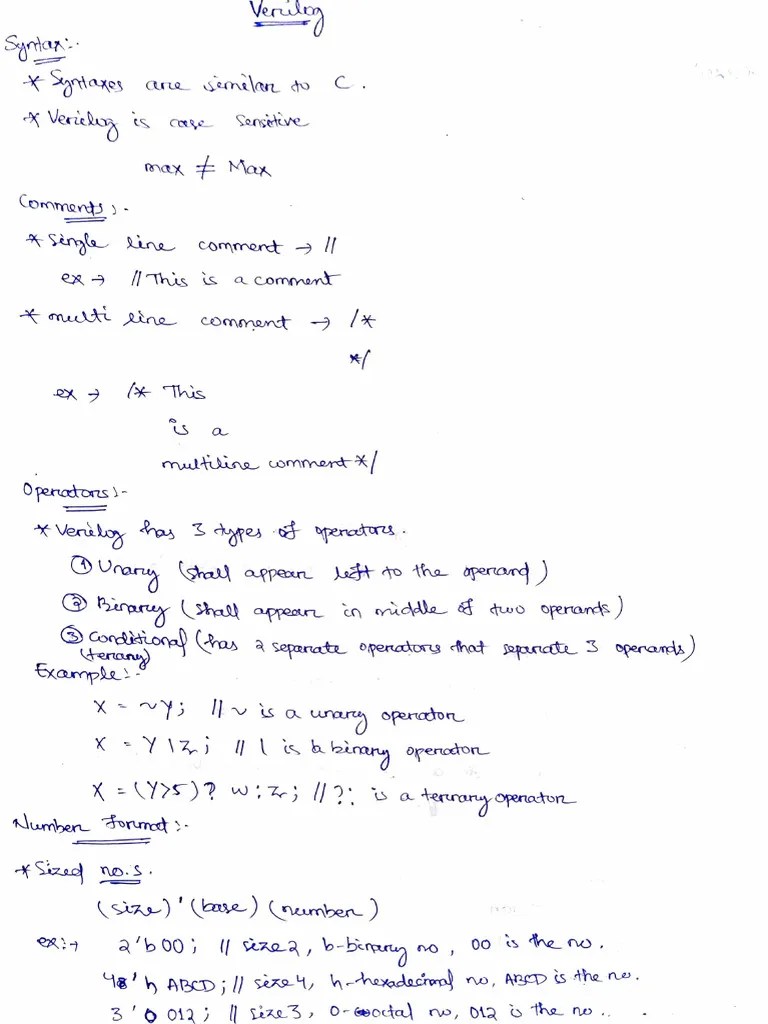 Verilog
Syntax:-
* Syntaxes are similar to C.
* Verilog is case sensitive
max ≠ Max
Comments:-
* Single line comment → //
ex → // This is a comment
* multi line comment → /*
*/
ex → /* This
is a
multiline comment */
Operators:-
* Verilog has 3 types of operators.
① Unary (shall appear left to the operand)
② Binary (shall appear in middle of two operands)
③ Conditional (has 2 separate operators that separate 3 operands)
(ternary)
Example:-
X = ~Y; // ~ is a unary operator
X = Y | Z; // | is a binary operator
X = (Y>5) ? W : Z; // ?: is a ternary operator
Number Format:-
* Sized no.s.
(size)'(base)(number)
ex:→ 2'b 00; // size 2, b-binary no, 00 is the no.
4'h ABCD; // size 4, h-hexadecimal no, ABCD is the no.
3'o 012; // size 3, o-octal no, 012 is the no..